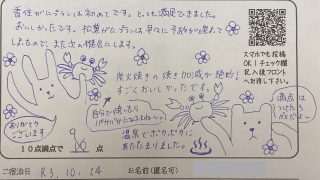 香住がにプランは初めてです。とっても満足できました。
おいしかったです。松葉がにプランは早々に予約が埋まって
しまうので、また次の機会にします。
炭火焼きの焼き加減が絶妙!
すごくおいしかったです。
自分で焼いたら
パサパサになるよね〜
満点は
つけたら
ダメだよー
ありがとう
ございます
温泉でポカポカに
あたたまりました。
10点満点で
点
スマホでも投稿
OK!チェック欄
記入後フロント
へお渡し下さい。
ご宿泊日 R3.10.24
お名前(匿名可)